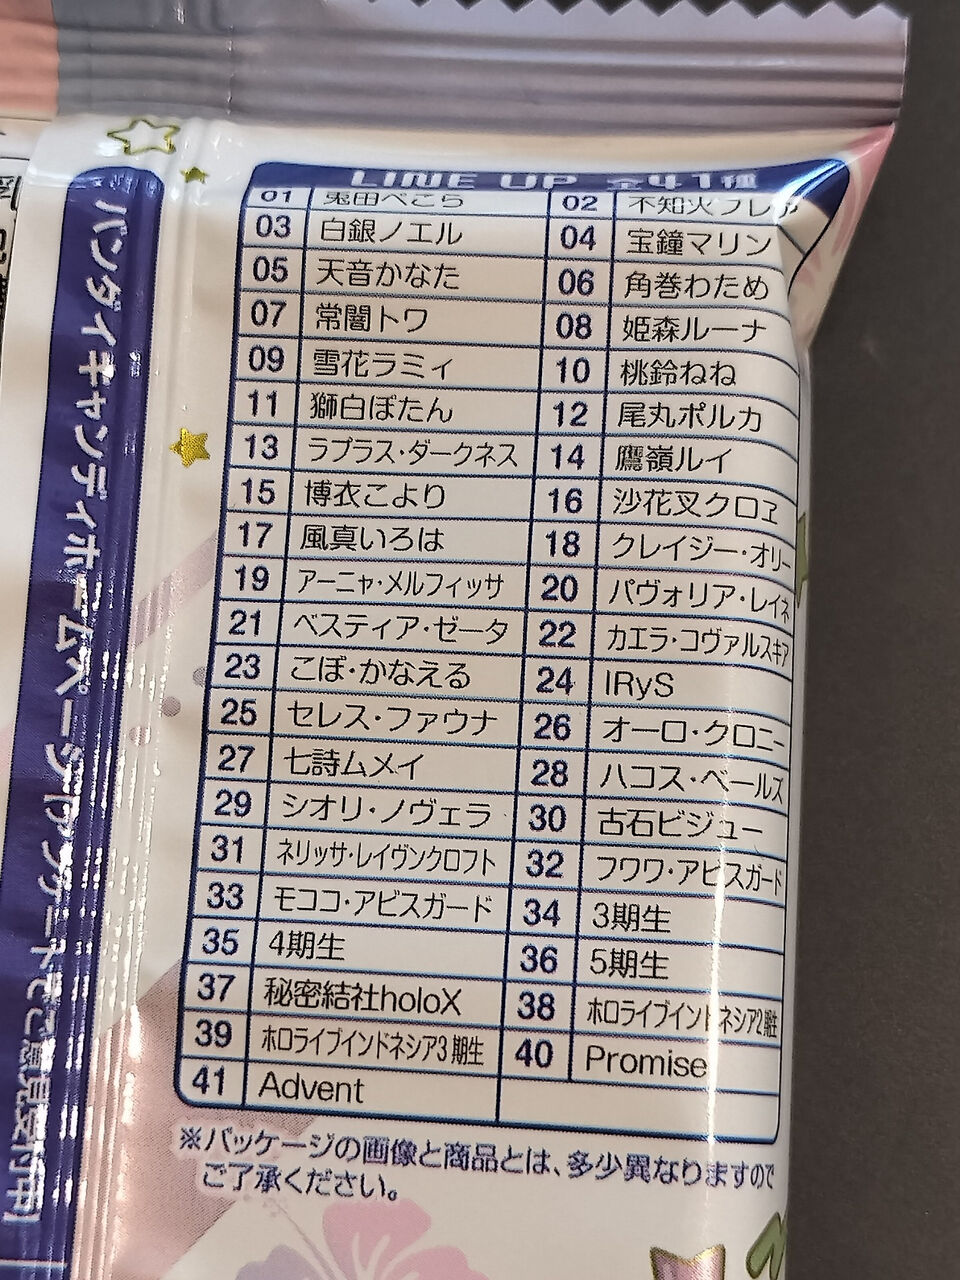 LINE UP 全41種
01 兎田ぺこら 02 不知火フレア
03 白銀ノエル 04 宝鐘マリン
05 天音かなた 06 角巻わため
07 常闇トワ 08 姫森ルーナ
09 雪花ラミィ 10 桃鈴ねね
11 獅白ぼたん 12 尾丸ポルカ
13 ラプラス・ダークネス 14 鷹嶺ルイ
15 博衣こより 16 沙花叉クロヱ
17 風真いろは 18 クレイジー・オリー
19 アーニャ・メルフィッサ 20 パヴォリア・レイネ
21 ベスティア・ゼータ 22 カエラ・コヴァルスキア
23 こぼ・かなえる 24 IRyS
25 セレス・ファウナ 26 オーロ・クロニー
27 七詩ムメイ 28 ハコス・ベールズ
29 シオリ・ノヴェラ 30 古石ビジュー
31 ネリッサ・レイヴンクロフト 32 フワワ・アビスガード
33 モココ・アビスガード 34 3期生
35 4期生 36 5期生
37 秘密結社holoX 38 ホロライブインドネシア2期生
39 ホロライブインドネシア3期生 40 Promise
41 Advent
※パッケージの画像と商品とは、多少異なりますので
ご了承ください。
バンダイキャンディホームページ